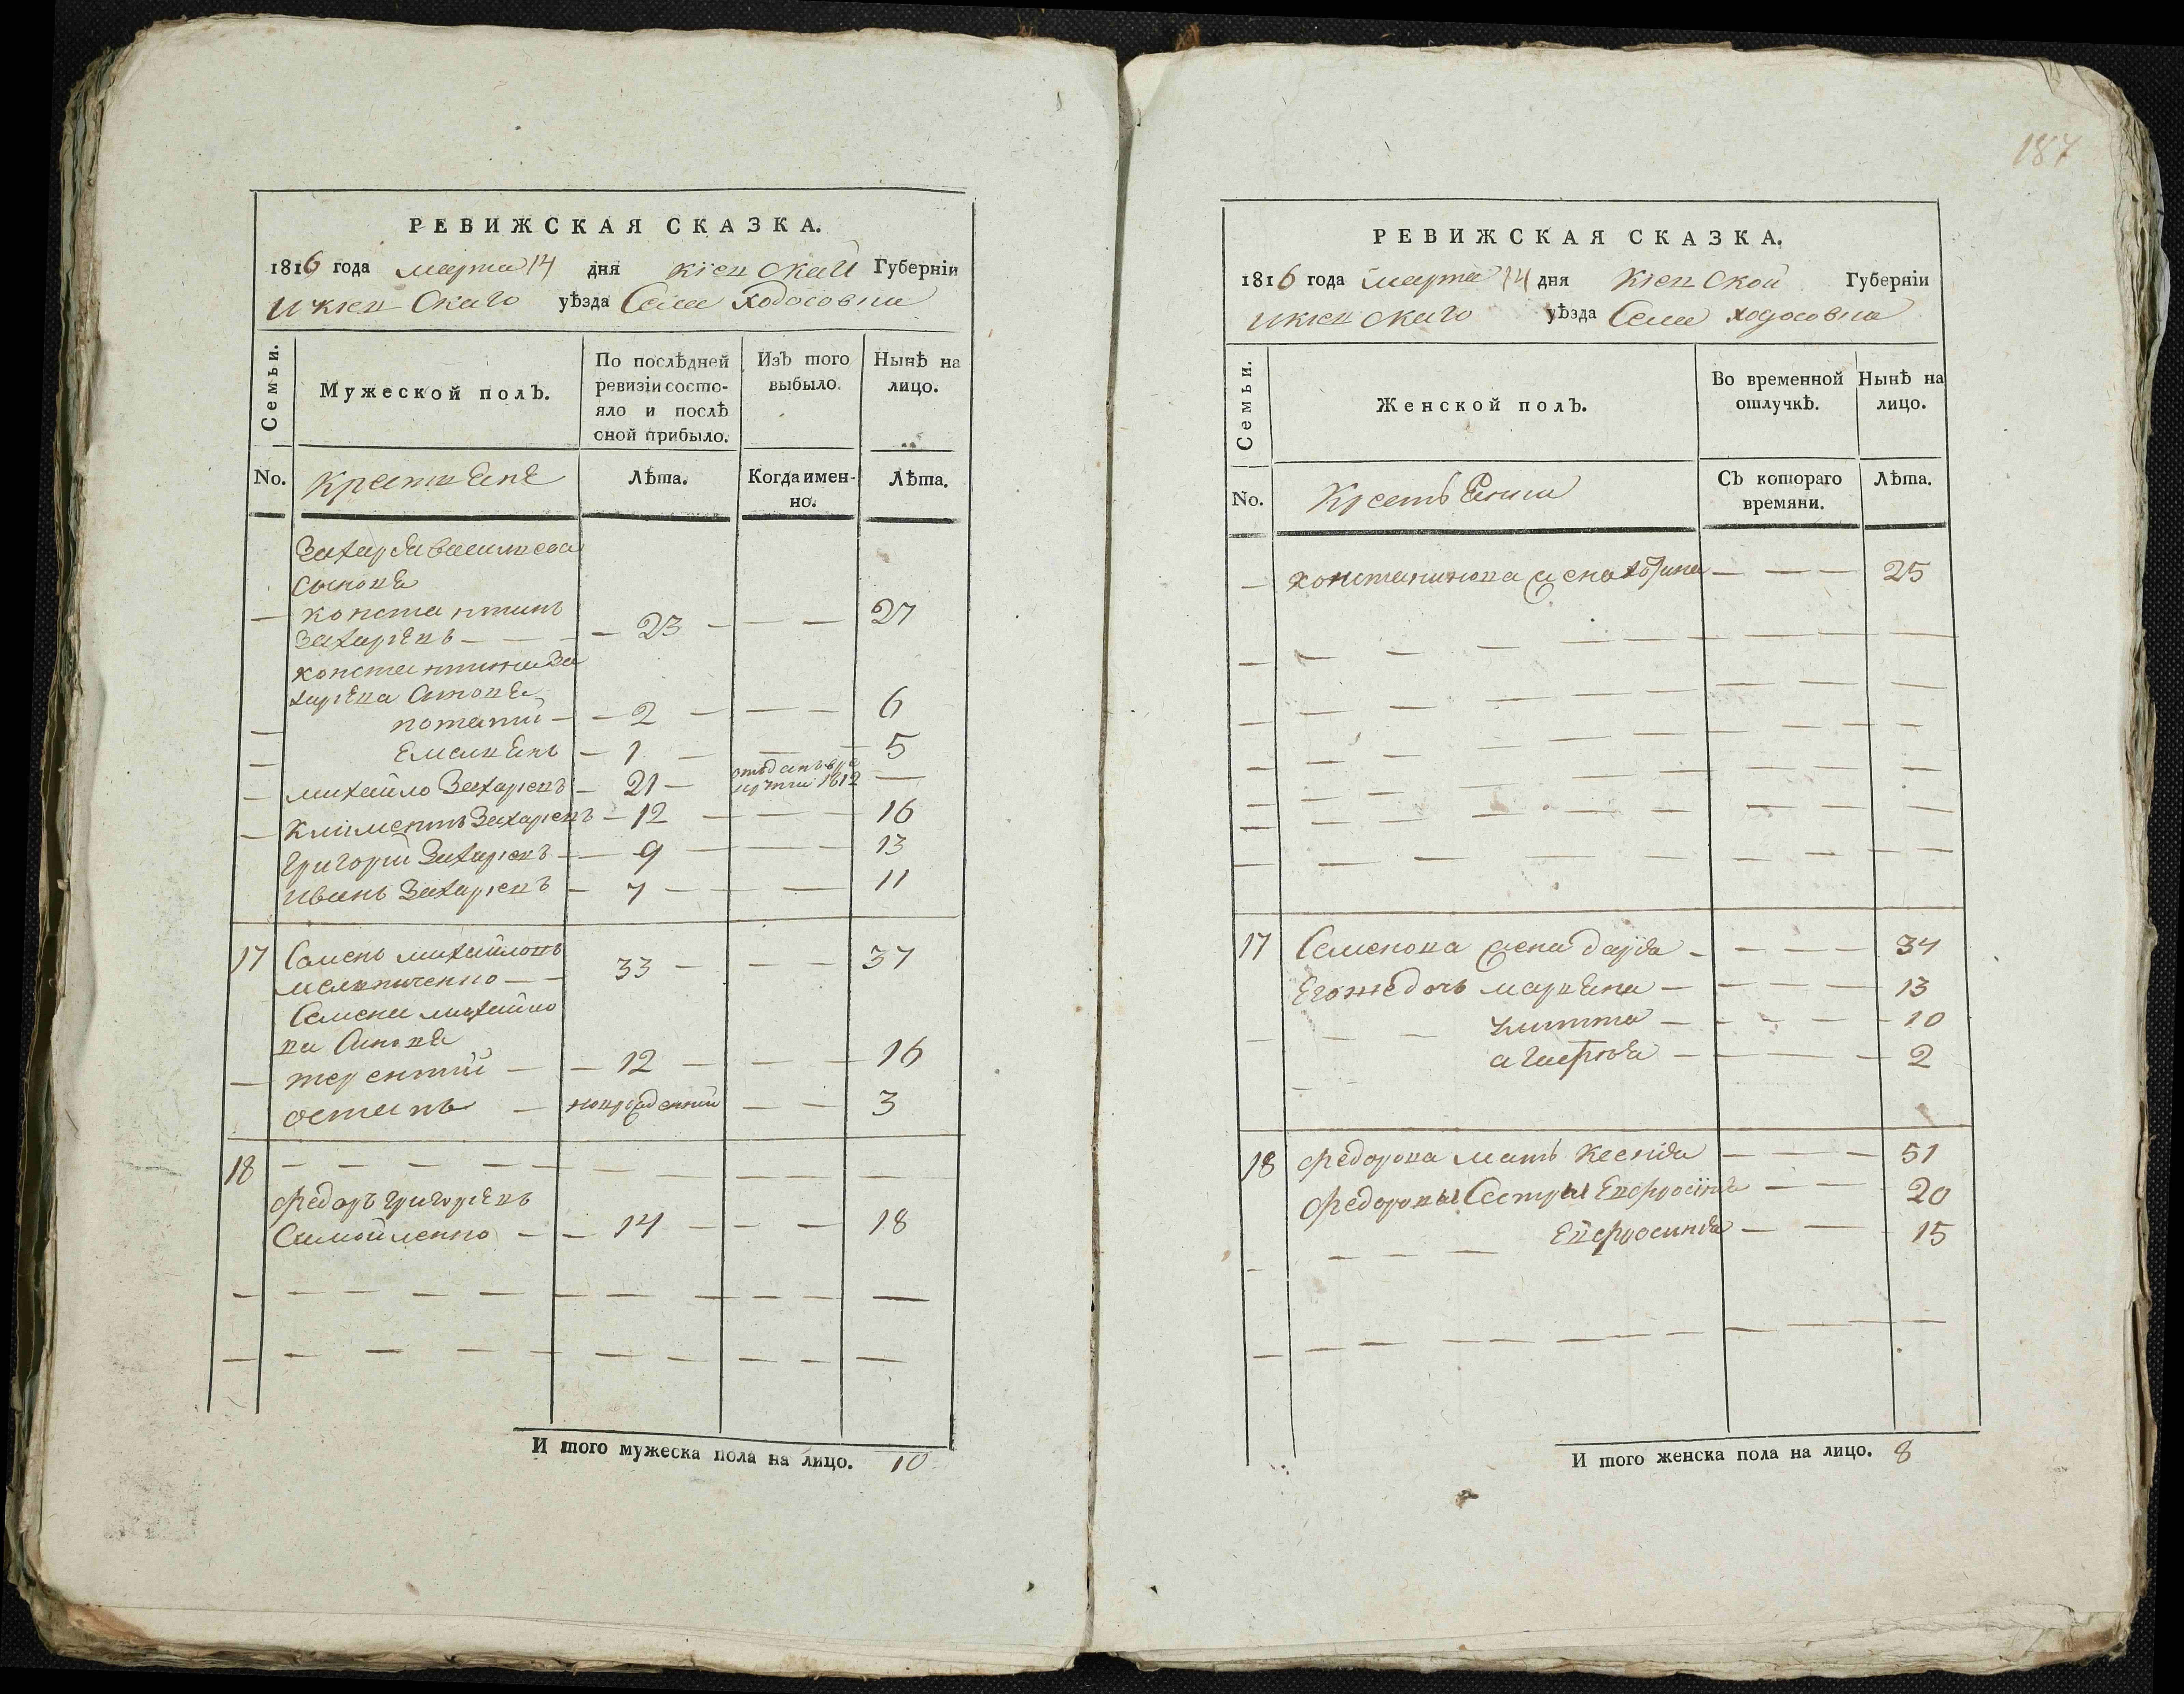 РЕВИЖСКАЯ СКАЗКА.
1816 года марта 14 дня Кіевской Губерніи
И кіевскаго уѣзда Села Ходосовки
Семьи.
Мужеской полЪ.
По послѣдней ревизіи состояло и послѣ оной прибыло.
ИзЪ того выбыло.
Нынѣ на лицо.
No.
Крестьяне
Лѣта.
Когда именно.
Лѣта.
Захарья васильева
сыновья
— константинъ
Захарьевъ — — — 23 — — — 27
константина За
харьева сыновья
— потапій — — 2 — — — 6
— Емельянъ — 1 — — — 5
— михайло Захаріевъ — 21 — отъданъ въ ре
круты 1812 —
— Климентъ Захаріевъ — 12 — — — 16
Григорій Захаріевъ — — 9 — — — 13
иванъ Захаріевъ — 7 — — — 11
17 Семенъ михайловъ
мельниченко — — 33 — — — 37
Семена михайло
ва сыновья
— терентій — — 12 — — — 16
остапъ — новорожденній — — 3
18 — — — — — — — — —
федоръ григорьевъ
Самойленко — — 14 — — — 18
И того мужеска пола на лицо. 10
187
РЕВИЖСКАЯ СКАЗКА.
1816 года марта 14 дня Кіевской Губерніи
И кіевскаго уѣзда Села ходосовки
Семьи.
Женской полЪ.
Во временной отлучкѣ.
Нынѣ на лицо.
No.
Крестьянки
СЪ котораго времяни.
Лѣта.
— константинова жена — — — 25
17 Семенова жена дарья — — — — 34
Его же дочь марьяна — — — — 13
— — — улита — — — — 10
— — 2
18 федорова мать Ксенія — — — 51
федоровы Сестры Евфросинія — — 20
— — — — Евфросинія — — 15
И того женска пола на лицо. 8